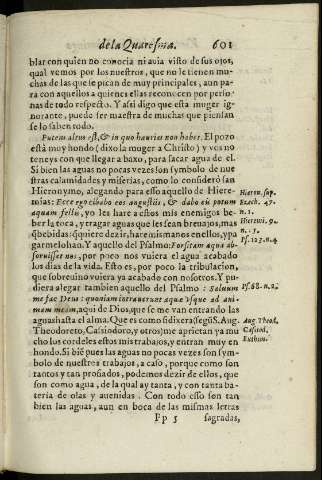 de la Quaresma. 601
blar con quien no conocia ni auia visto de sus ojos,
qual vemos por los nuestros, que no le tienen mu-
chas de las que le pican de muy principales, aun pa-
ra con aquellos a quienes ellas reconocen por perso-
nas de todo respeto. Y assi digo que esta muger ig-
norante, puede ser maestra de muchas que piensan
se lo saben todo.
Puteus altus est, & in quo haurias non habes. El pozo
está muy hondo (dixo la muger a Christo) y vos no
teneys con que llegar a baxo, para sacar agua de el.
Si bien las aguas no pocas vezes son symbolo de nue
stras calamidades y miserias, como lo consideró san
Hieronymo, alegando para esso aquello de Hiere-
mias: Ecce ego cibabo eos angustiis, & dabo eis potum
aquam fellis, yo les hare a estos mis enemigos be-
ber la toca, y tragar aguas que les sean breuajos, mas
q̃ bebidas (quiere dezir, harè mis manos en ellos, y pa
garmelo han. Y aquello del Psalmo: Forsitam aqua ab-
soruisset nos, por poco nos vuiera el agua acabado
los dias de la vida. Esto es, por poco la tribulacion,
que sobreuino vuiera ya acabado con nosotros. Y pu-
diera alegar tambien aquello del Psalmo: Saluum
me fac Deus: quoniam intrauerunt aquæ vsque ad ani-
mam meam, aqui de Dios, que se me van entrando las
aguas hasta el alma. Que es como si dixera (segũ S. Aug.
Theodoreto, Cassiodoro, y otros) me aprietan ya mu
cho los cordeles estos mis trabajos, y entran muy en
hondo. Si biẽ pues las aguas no pocas vezes son sym-
bolo de nuestros trabajos, a caso, porque como son
tantos y tan prosados, podemos dezir de ellos, que
son como agua, de la qual ay tanta, y con tanta ba-
teria de olas y auenidas. Con todo esso son tan
bien las aguas, aun en boca de las mismas letras
Pp 5 sagradas,
Hieron. sup.
Ezech. 47.
n. 1.
Hierem. 9.
n. 15.
Ps. 123. n. 4
Ps. 68. n. 2.
Aug Theod.
Cassiod.
Euthim.